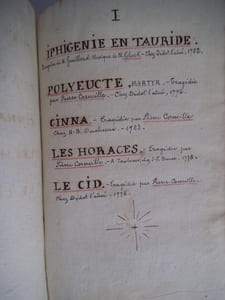 I
IPHIGENIE EN TAURIDE.
Tragédie de M. Guillard. Musique de M. Gluck. - Chez Didot l'aîné, 1782.
POLYEUCTE MARTYR - Tragédie
par Pierre Corneille. - Chez Didot l'aîné, 1776.
CINNA. - Tragédie par Pierre Corneille
Chez N-B. Duchesne -
LES HORACES. - Tragédie par
Pierre Corneille. - A Toulouse, chez
LE CID. - Tragédie par Pierre Corneille.
Chez Didot l'aîné. - 1776.